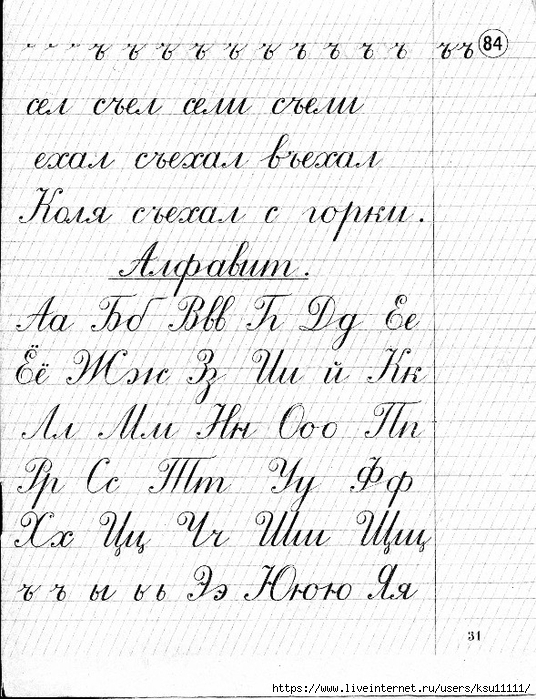 ъ ъ ъ ъ ъ ъ ъ ъ ъ ъ ъъ 84
сел съел сели съели
ехал съехал въехал
Коля съехал с горки.
Алфавит.
Аа Бб Ввв Гг Дд Ее
Ёё Жж Зз Ии й Кк
Лл Мм Нн Ооо Пп
Рр Сс Тт Уу Фф
Хх Цц Чч Шш Щщ
ъ ъ ы ь ь Ээ Ююю Яя
31
https://www.liveinternet.ru/users/ksu11111/